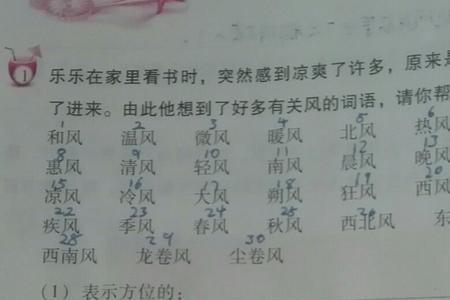 1 乐乐在家里看书时，突然感到凉爽了许多，原来是
了进来。由此他想到了好多有关风的词语，请你帮
1 2 3 4 5 6
和风 温风 微风 暖风 北风 热风
8 9 10 11 12 13
惠风 清风 轻风 南风 晨风 晚风
15 16 17 18 19 20
凉风 冷风 大风 朔风 狂风 西风
22 23 24 25 26
疾风 季风 春风 秋风 西北风 东
28 29 30
西南风 龙卷风 尘卷风
（1）表示方位的：